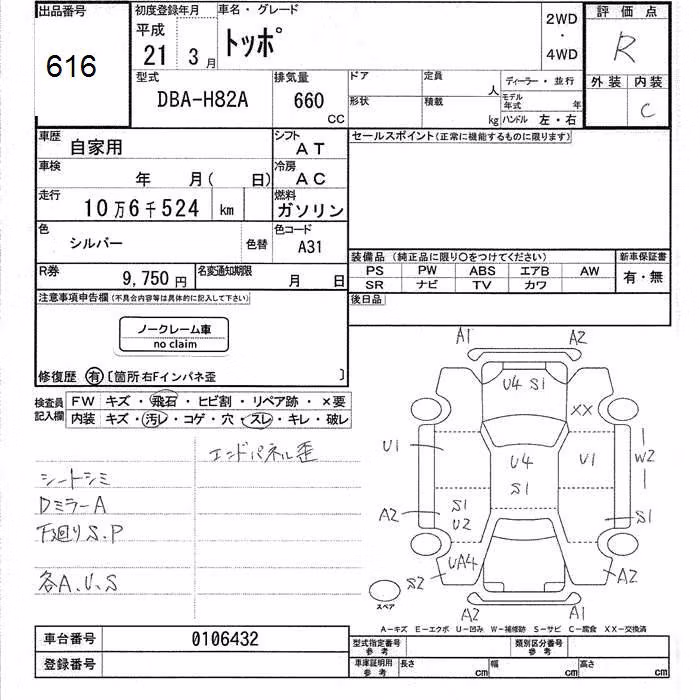 出品番号
616
初度登録年月
平成
21 3月
車名・グレード
トッポ
2WD
・
4WD
評価点
R
型式
DBA-H82A
排気量
660
CC
ドア
定員
人
ディーラー・並行
モデル年式
年
形状
積載
kg
ハンドル 左・右
外装 内装
C
車歴
自家用
シフト
AT
セールスポイント(正常に機能するものに限ります)
車検
年 月( 日)
冷房
AC
走行
10万6千524 km
燃料
ガソリン
色
シルバー
色替
色コード
A31
装備品 (純正品に限り〇をつけてください)
新車保証書
PS PW ABS エアB AW
SR ナビ TV カワ
有・無
R券
9,750円
名変通知期限
月 日
後日品
注意事項申告欄(不具合内容等は具体的に記入して下さい)
ノークレーム車
no claim
修復歴 有 〔箇所右Fインパネ歪 〕
検査員記入欄
FW キズ・飛石・ヒビ割・リペア跡・×要
内装 キズ・汚レ・コゲ・穴・スレ・キレ・破レ
エンドパネル歪
シートシミ
DミラーA
下廻りS.P
各A.U.S
A1 A2
U4 S1
XX
U1
U4
S1
U1
W2
A2
S1
U2
S1
S2
UA4
A2
A2 A1
スペア
A-キズ E-エクボ U-凹み W-補修跡 S-サビ C-腐食 XX-交換済
車台番号
0106432
型式指定番号
参考
類別区分番号
参考
登録番号
車庫証明用
参考
長さ
cm
幅
cm
高さ
cm